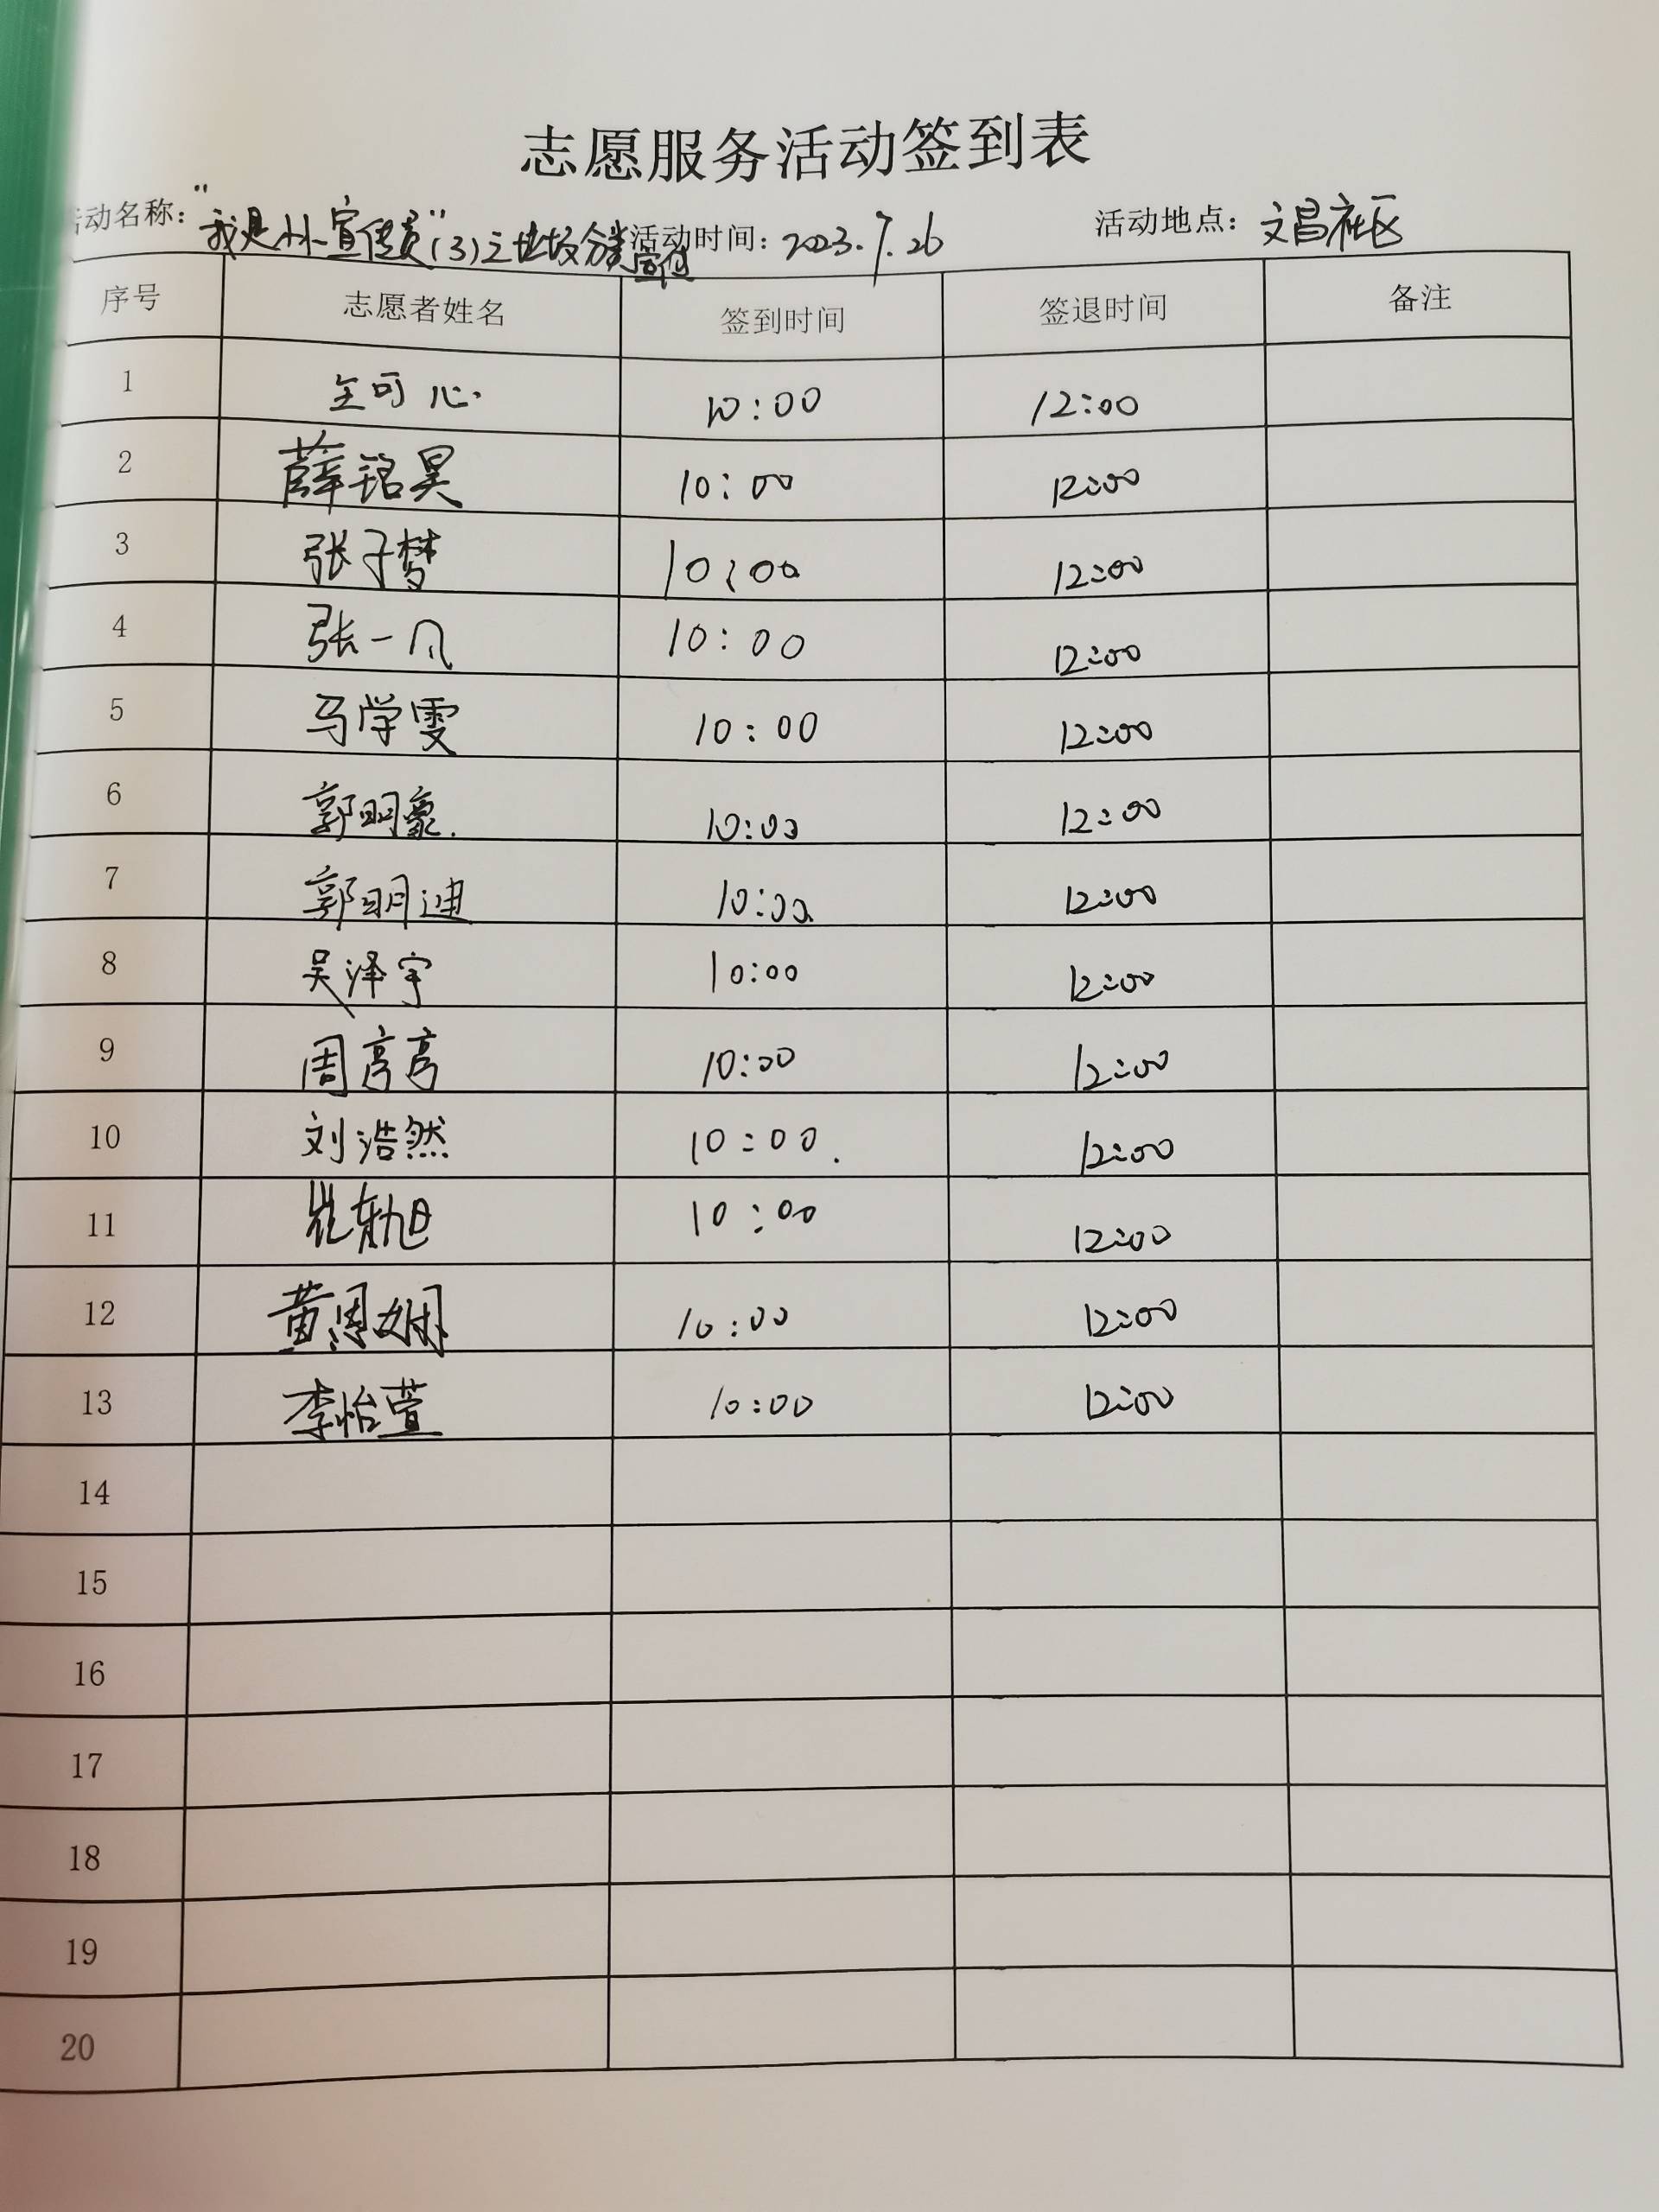 志愿服务活动签到表
活动名称："我是小小宣传员"(3)之垃圾分类宣传 活动时间：2023.7.26 活动地点：文昌社区
序号 志愿者姓名 签到时间 签退时间 备注
1 王可心 10:00 12:00
2 薛铭昊 10:00 12:00
3 张子梦 10:00 12:00
4 张一凡 10:00 12:00
5 马学雯 10:00 12:00
6 郭明豪 10:00 12:00
7 郭明迪 10:00 12:00
8 吴泽宇 10:00 12:00
9 周亭亭 10:00 12:00
10 刘浩然 10:00 12:00
11 崔旭 10:00 12:00
12 黄周娴 10:00 12:00
13 李怡萱 10:00 12:00
14
15
16
17
18
19
20